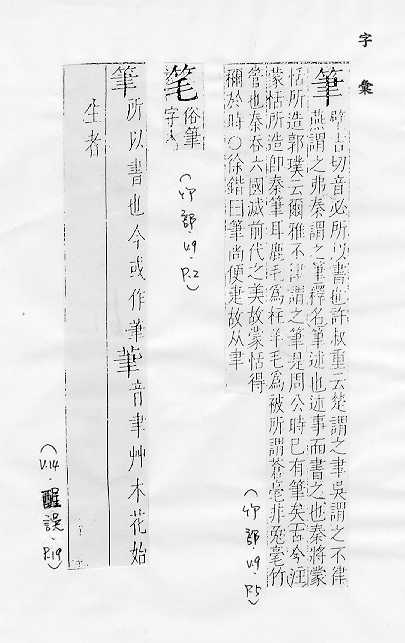 字彙
筆
壁吉切音必所以書也許叔重云楚謂之聿吳謂之不律
燕謂之弗秦謂之筆釋名筆述也述事而書之也秦將蒙
恬所造郭璞云爾雅不律謂之筆是周公時已有筆矣古今注
蒙恬所造卽秦筆耳鹿毛爲柱羊毛爲被所謂蒼毫非兎毫竹
管也秦吞六國滅前代之美故蒙恬得
稱於時○徐鍇曰筆尚便疌故从聿
(竹部 V9. P.5)
笔
俗筆
字
(竹部 V9. P.2)
筆所以書也今或作茟茟音聿艸木花始
生者
(V.14.醒誤.P.19)